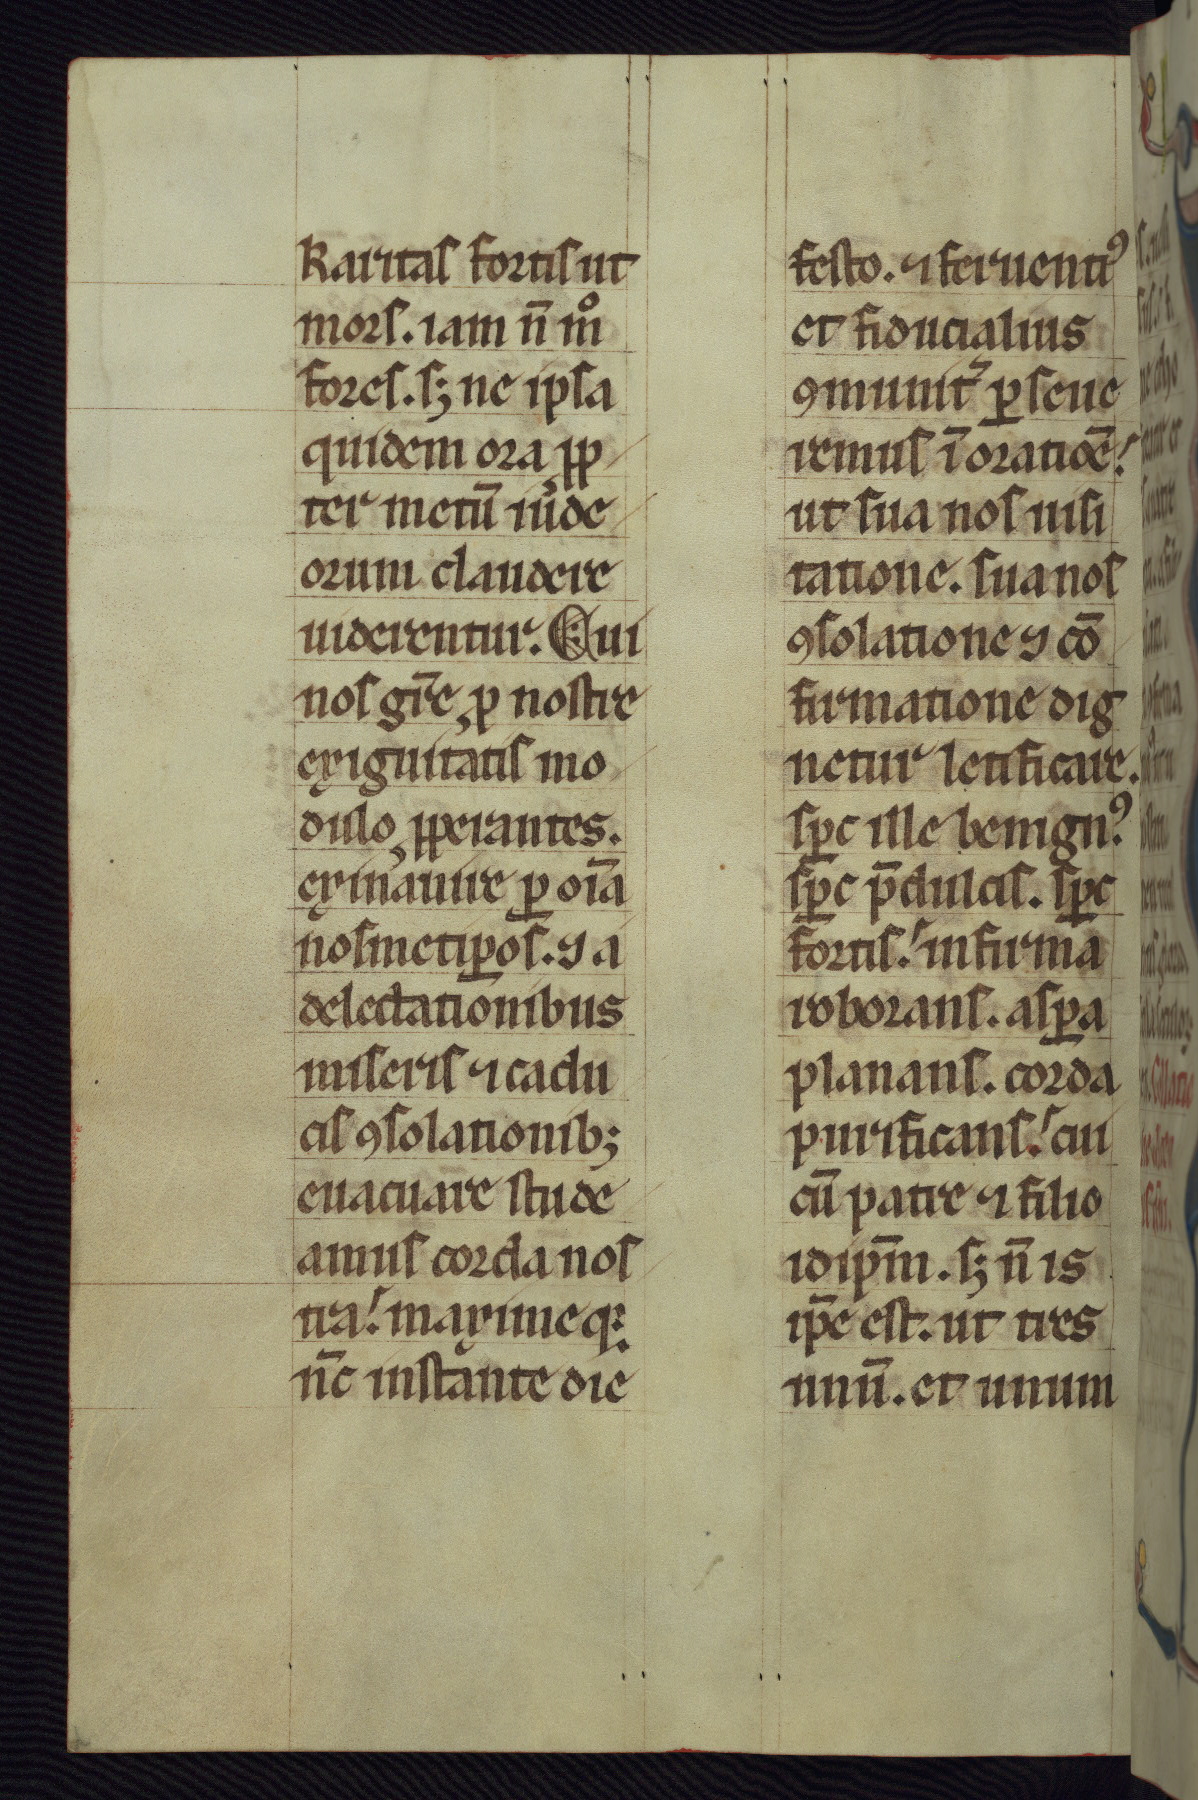 Karitas fortis ut
mors. iam n̄ mͦ
fores. sꝫ ne ipsa
quidem ora ꝓp
ter metū iude
orum claudere
uiderentur. Qui
nos gr̄e ꝓ nostre
exiguitatis mo
dulo ꝓperantes.
exinanire ꝑ oīa
nosmetiꝑos. ⁊ a
delectationibus
miseris ⁊ cadu
cis ꝯsolationibꝫ
euacuare stude
amus corda nos
tra. maxime q;
nc̄ instante die
festo. ⁊ feruentiꝰ
et fiducialius
ꝯmunit᷑ ꝑseue
remus ī oratiōe.
ut sua nos uisi
tatione. sua nos
ꝯsolatione ⁊ cō
firmatione dig
netur letificare.
sp̄c ille benignꝰ.
sp̄c p̄dulcis. sp̄c
fortis. infirma
roborans. asꝑa
planans. corda
purificans. cui
cū patre ⁊ filio
idip̄m. sꝫ n̄ is
ip̄e est. ut tres
unū. et unum